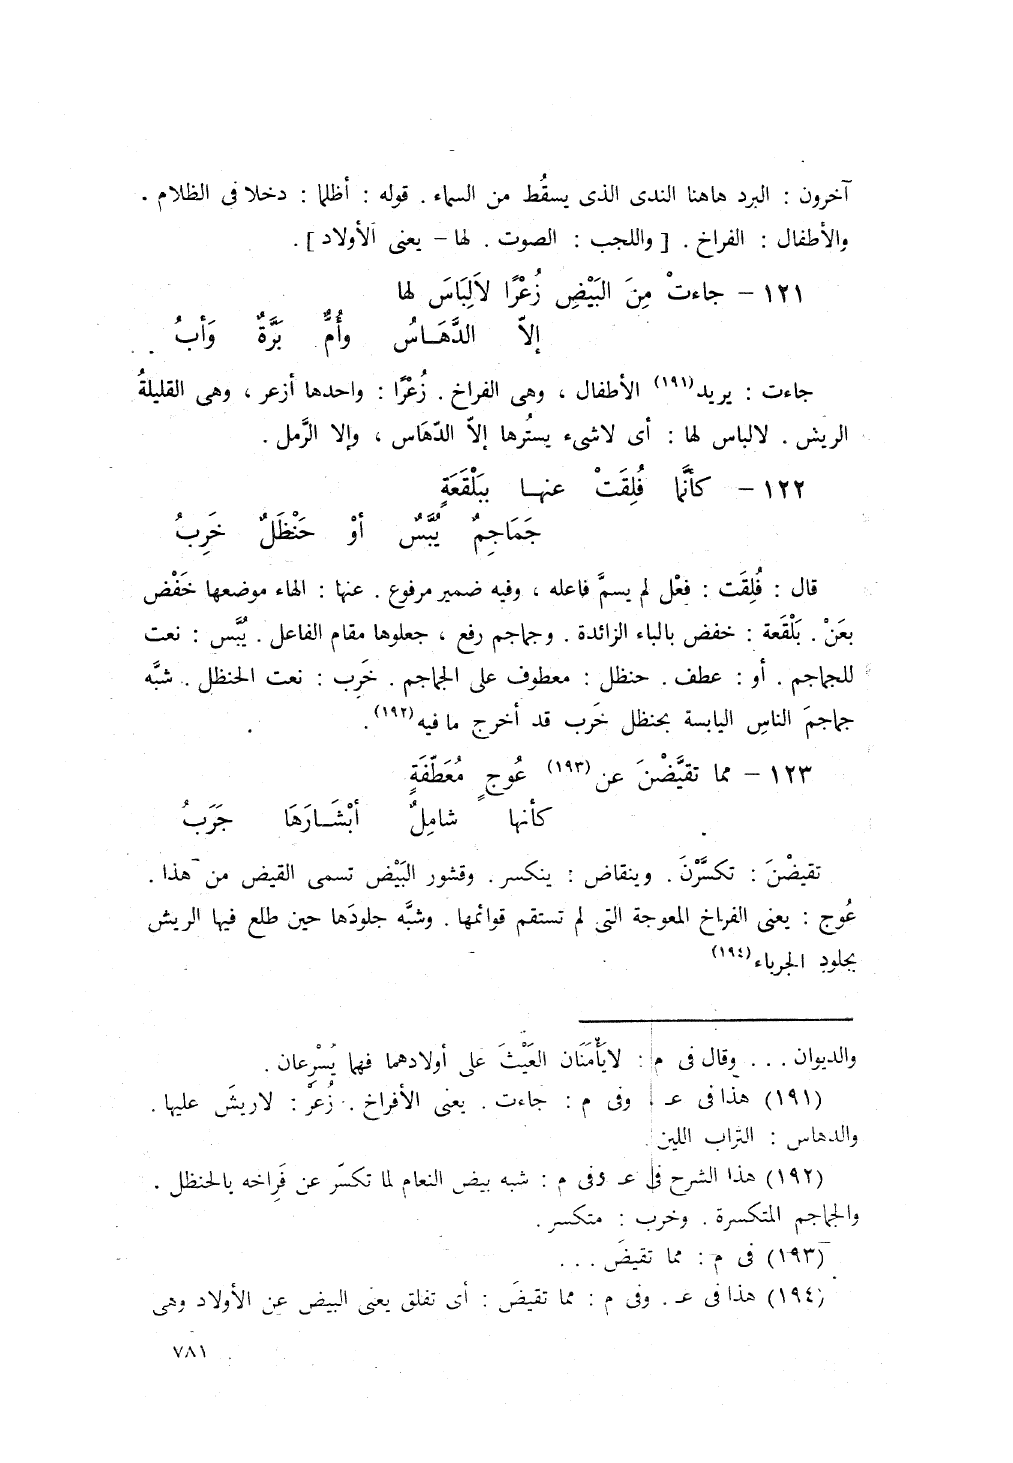 آخرون : البرد هاهنا الندى الذى يسقُط من السماء . قوله : أظلما : دخلا فى الظلام .
والأطفال : الفراخ . [ واللجب : الصوت . لها – يعنى الأولاد ] .
١٢١ – جاءتْ مِنَ البَيْضِ زُعْرًا لاَلِبَاسَ لها
إلاّ الدَّهَــاسُ وأُمٌّ بَرَّةٌ وَأبُ
جاءت : يريد(١٩١) الأطفال ، وهى الفراخ . زُعْرًا : واحدها أزعر ، وهى القليلةُ
الريش . لالباس لها : أى لاشىء يستُرها إلاّ الدّهَاس ، وإلا الرَّمل .
١٢٢ – كأنَّما فُلِقَتْ عنهــا ببَلْقَعَةٍ
جَمَاجِمٌ يُبَّسٌ أوْ حَنْظَلٌ خَرِبُ
قال : فُلِقَت : فعْل لم يسمَّ فاعله ، وفيه ضمير مرفوع . عنها : الهاء موضعها خَفْض
بعَنْ . بَلْقَعة : خفض بالباء الزائدة . وجماجم رفع ، جعلوها مقام الفاعل . يُبَّس : نعت
للجماجم . أو : عطف . حنظل : معطوف على الجماجم . خَرِب : نعت الحنظل . شبَّه
جماجمَ الناسِ اليابسة بحنظل خَرب قد أخرج ما فيه(١٩٢) .
١٢٣ – مما تقيَّضْنَ عن(١٩٣) عُوجٍ مُعَطَّفَةٍ
كأنها شامِلٌ أبْشَــارَهَا جَرَبُ
تقيضْنَ : تكسَّرْنَ . وينقاض : ينكسر . وقشور البَيْض تسمى القيض من هذا .
عُوج : يعنى الفراخ المعوجة التى لم تستقم قوائمها . وشبَّه جلودَها حين طلع فيها الريش
بجلودِ الجرباء(١٩٤)
والديوان . . . وقال فى م : لايَأْمَنَان الغَيْثَ على أولادهما فهما يُسْرِعان .
(١٩١) هذا فى عـ . وفى م : جاءت . يعنى الأفراخ . زُعرْ : لاريشَ عليها .
والدهاس : التراب اللين .
(١٩٢) هذا الشرح فى عـ وفى م : شبه بيض النعام لما تكسّر عن فَراخه بالحنظل .
والجماجم المتكسرة . وخرب : متكسر .
(١٩٣) فى م : مما تقيضَ . . .
(١٩٤) هذا فى عـ . وفى م : مما تقيضَ : أى تفلق يعنى البيض عن الأولاد وهى
٧٨١